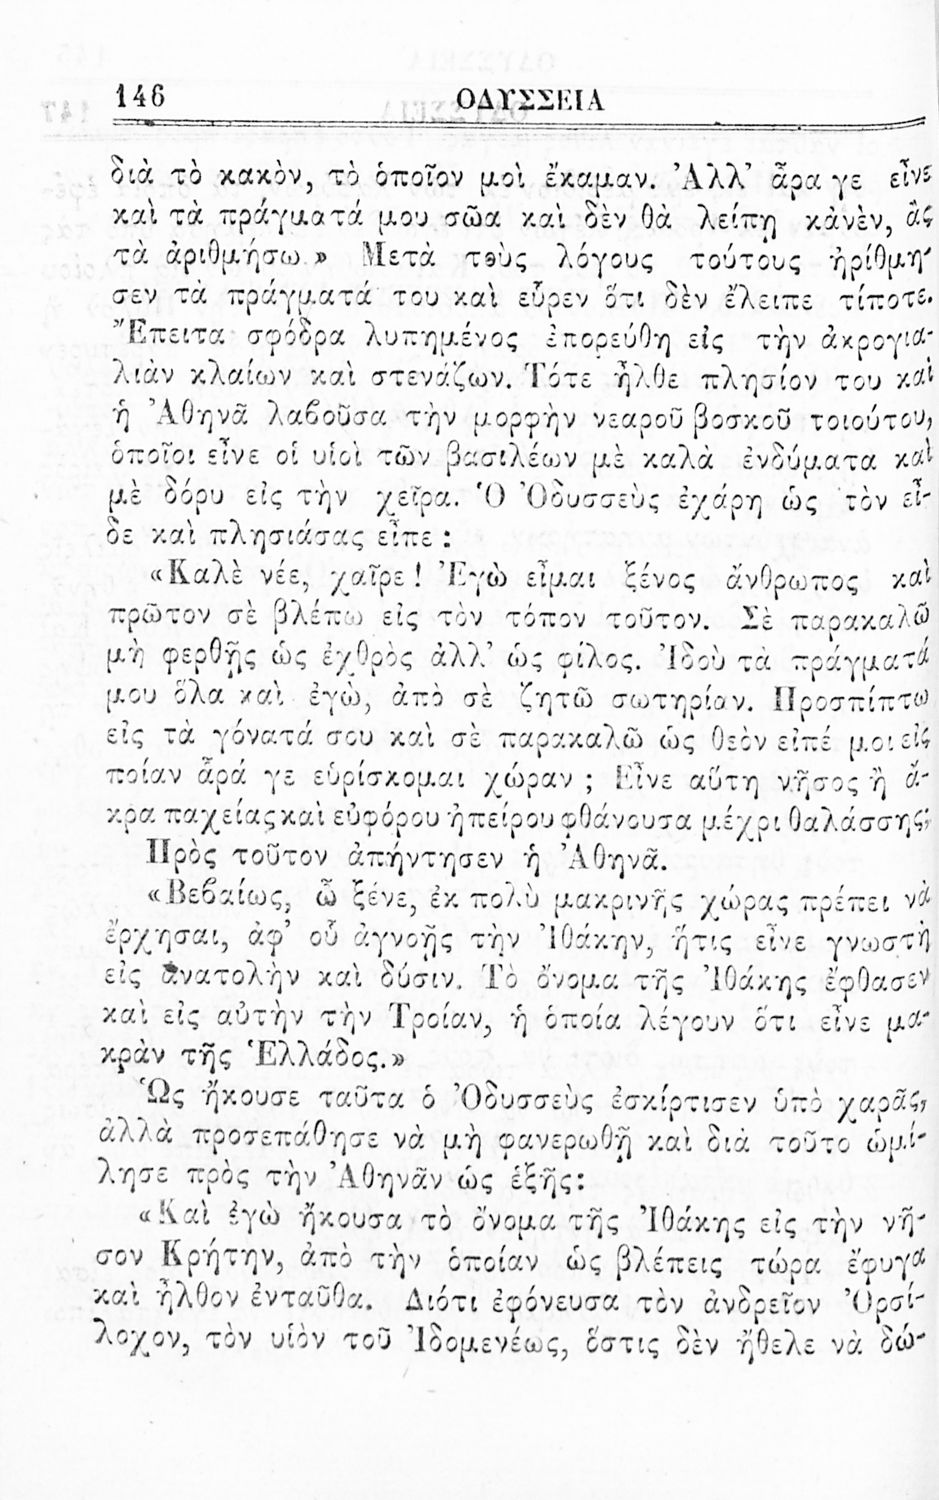 146 ΟΔΥΣΣΕΙΑ
διὰ τὸ κακὸν, τὸ ὁποῖον μοὶ ἔκαμαν. Ἀλλ’ ἆρα γε εἶνε
καὶ τὰ πράγματά μου σῶα καὶ δὲν θὰ λείπῃ κἀνὲν, ἂς
τὰ ἀριθμήσω.» Μετὰ τοὺς λόγους τούτους ἠρίθμη-
σεν τὰ πράγματά του καὶ εὗρεν ὅτι δὲν ἔλειπε τίποτε.
Ἔπειτα σφόδρα λυπημένος ἐπορεύθη εἰς τὴν ἀκρογια-
λιὰν κλαίων καὶ στενάζων. Τότε ἦλθε πλησίον του καὶ
ἡ Ἀθηνᾶ λαβοῦσα τὴν μορφὴν νεαροῦ βοσκοῦ τοιούτου,
ὁποῖοι εἶνε οἱ υἱοὶ τῶν βασιλέων μὲ καλὰ ἐνδύματα καὶ
μὲ δόρυ εἰς τὴν χεῖρα. Ὁ Ὀδυσσεὺς ἐχάρη ὡς τὸν εἶ-
δε καὶ πλησιάσας εἶπε :
«Καλὲ νέε, χαῖρε! Ἐγὼ εἶμαι ξένος ἄνθρωπος καὶ
πρῶτον σὲ βλέπω εἰς τὸν τόπον τοῦτον. Σὲ παρακαλῶ
μὴ φερθῇς ὡς ἐχθρὸς ἀλλ’ ὡς φίλος. Ἰδοὺ τὰ πράγματά
μου ὅλα καὶ ἐγὼ, ἀπὸ σὲ ζητῶ σωτηρίαν. Προσπίπτω
εἰς τὰ γόνατά σου καὶ σὲ παρακαλῶ ὡς θεὸν εἰπέ μοι εἰς
ποίαν ἆρά γε εὑρίσκομαι χώραν ; Εἶνε αὕτη νῆσος ἢ ἄ-
κρα παχείας καὶ εὐφόρου ἠπείρου φθάνουσα μέχρι θαλάσσης;
Πρὸς τοῦτον ἀπήντησεν ἡ Ἀθηνᾶ.
«Βεβαίως, ὦ ξένε, ἐκ πολὺ μακρινῆς χώρας πρέπει νὰ
ἔρχησαι, ἀφ’ οὗ ἀγνοῇς τὴν Ἰθάκην, ἥτις εἶνε γνωστὴ
εἰς ἀνατολὴν καὶ δύσιν. Τὸ ὄνομα τῆς Ἰθάκης ἔφθασεν
καὶ εἰς αὐτὴν τὴν Τροίαν, ἡ ὁποία λέγουν ὅτι εἶνε μα-
κρὰν τῆς Ἑλλάδος.»
Ὡς ἤκουσε ταῦτα ὁ Ὀδυσσεὺς ἐσκίρτισεν ὑπὸ χαρᾶς,
ἀλλὰ προσεπάθησε νὰ μὴ φανερωθῇ καὶ διὰ τοῦτο ὡμί-
λησε πρὸς τὴν Ἀθηνᾶν ὡς ἑξῆς:
«Καὶ ἐγὼ ἤκουσα τὸ ὄνομα τῆς Ἰθάκης εἰς τὴν νῆ-
σον Κρήτην, ἀπὸ τὴν ὁποίαν ὡς βλέπεις τώρα ἔφυγα
καὶ ἦλθον ἐνταῦθα. Διότι ἐφόνευσα τὸν ἀνδρεῖον Ὀρσί-
λοχον, τὸν υἱὸν τοῦ Ἰδομενέως, ὅστις δὲν ἤθελε νὰ δώ-